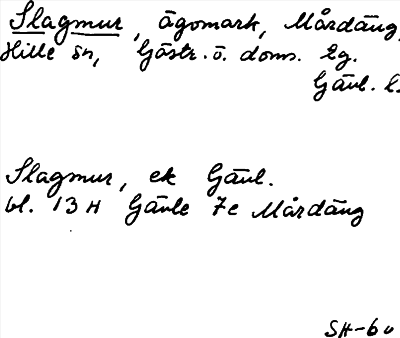 Slagmur, ägomark, Mårdäng,
Hille sn, Gästr. ö. doms. lg.
Gävl. l.
Slagmur, ek Gävl.
bl. 13 H Gävle 7c Mårdäng
SH-60